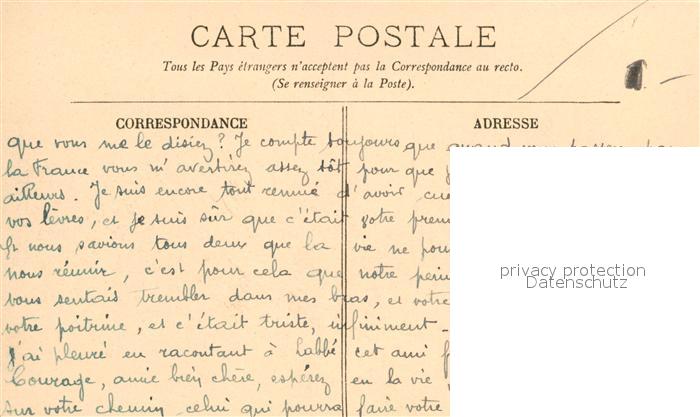 CARTE POSTALE
Tous les Pays étrangers n'acceptent pas la Correspondance au recto.
(Se renseigner à la Poste).
CORRESPONDANCE
ADRESSE
que vous me le disiez? Je compte toujours que quand vous
la France vous m'avertirez assez tôt pour que
ailleurs. Je suis encore tout remué d'avoir
vos lèvres, et je suis sûr que c'était votre
Et nous savions tous deux que la vie ne
nous réunir, c'est pour cela que notre
vous sentais trembler dans mes bras, et votre
votre poitrine, et c'était triste, infiniment-
J'ai pleuré en racontant à l'abbé cet ami
Courage, amie bien chère, espérez en la vie
sur votre chemin celui qui pourra faire votre
privacy protection
Datenschutz